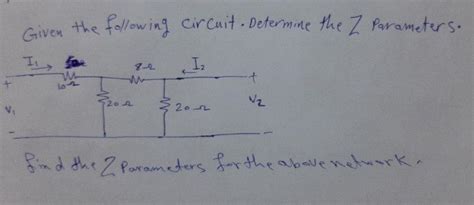 Given the following circuit. Determine the Z Parameters.
I₁ 8Ω I₂
+ 10Ω +
V₁ 20Ω 20Ω V₂
- -
find the Z Parameters for the above network.